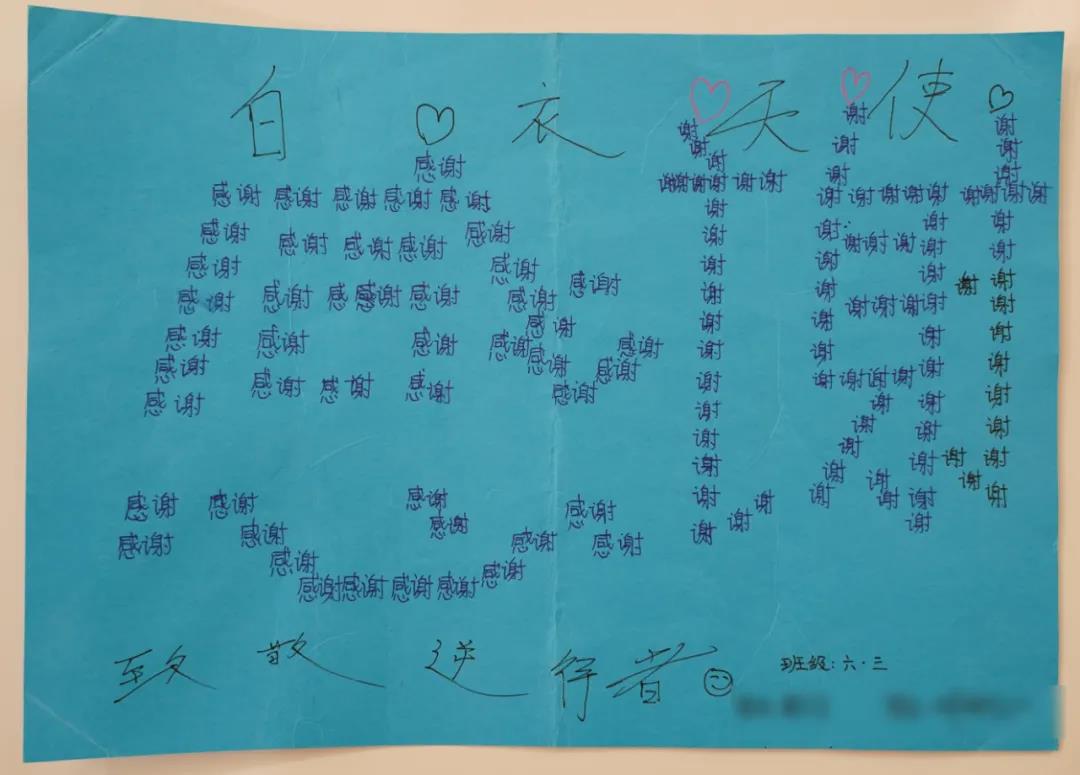 白衣天使
感谢
感谢 感谢 感谢 感谢 感谢
感谢 感谢 感谢 感谢 感谢
感谢 感谢
感谢 感谢 感 感谢 感谢 感谢 感谢
感谢
感谢 感谢 感谢 感谢 感谢
感谢 感谢 感谢
感谢 感谢 感谢 感谢
感谢
感谢 感谢 感谢 感谢
感谢 感谢
感谢 感谢 感谢
感谢 感谢
感谢 感谢 感谢 感谢
谢
谢
谢
谢谢谢谢 谢谢
谢
谢
谢
谢
谢
谢
谢
谢
谢
谢
谢 谢
谢 谢
谢 谢
谢 谢
谢 谢
谢 谢 谢谢谢 谢谢谢谢
谢 谢 谢
谢谢 谢 谢 谢
谢 谢 谢 谢
谢 谢谢谢谢 谢
谢 谢 谢
谢 谢
谢 谢谢谢 谢 谢
谢 谢 谢
谢 谢 谢
谢 谢 谢 谢
谢 谢 谢
谢 谢 谢 谢
谢
致敬逆行者
班级：六·三